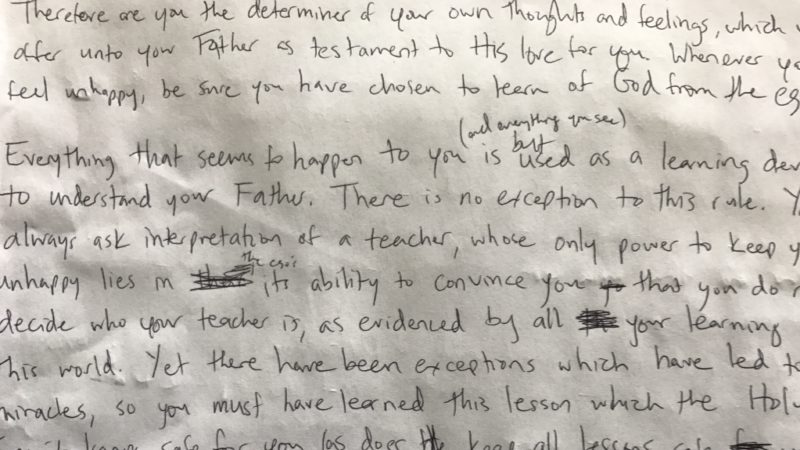 Therefore are you the determiner of your own thoughts and feelings, which
offer unto your Father as testament to His love for you. Whenever
feel unhappy, be sure you have chosen to learn of God from the
(and everything you see)
Everything that seems to happen to you is but used as a learning
to understand your Father. There is no exception to this rule.
always ask interpretation of a teacher, whose only power to keep
the ego's
unhappy lies in its ability to convince you that you do
decide who your teacher is, as evidenced by all your learning
this world. Yet there have been exceptions which have led to
miracles, so you must have learned this lesson which the Holy
safe for you (as does keep all lessons safe